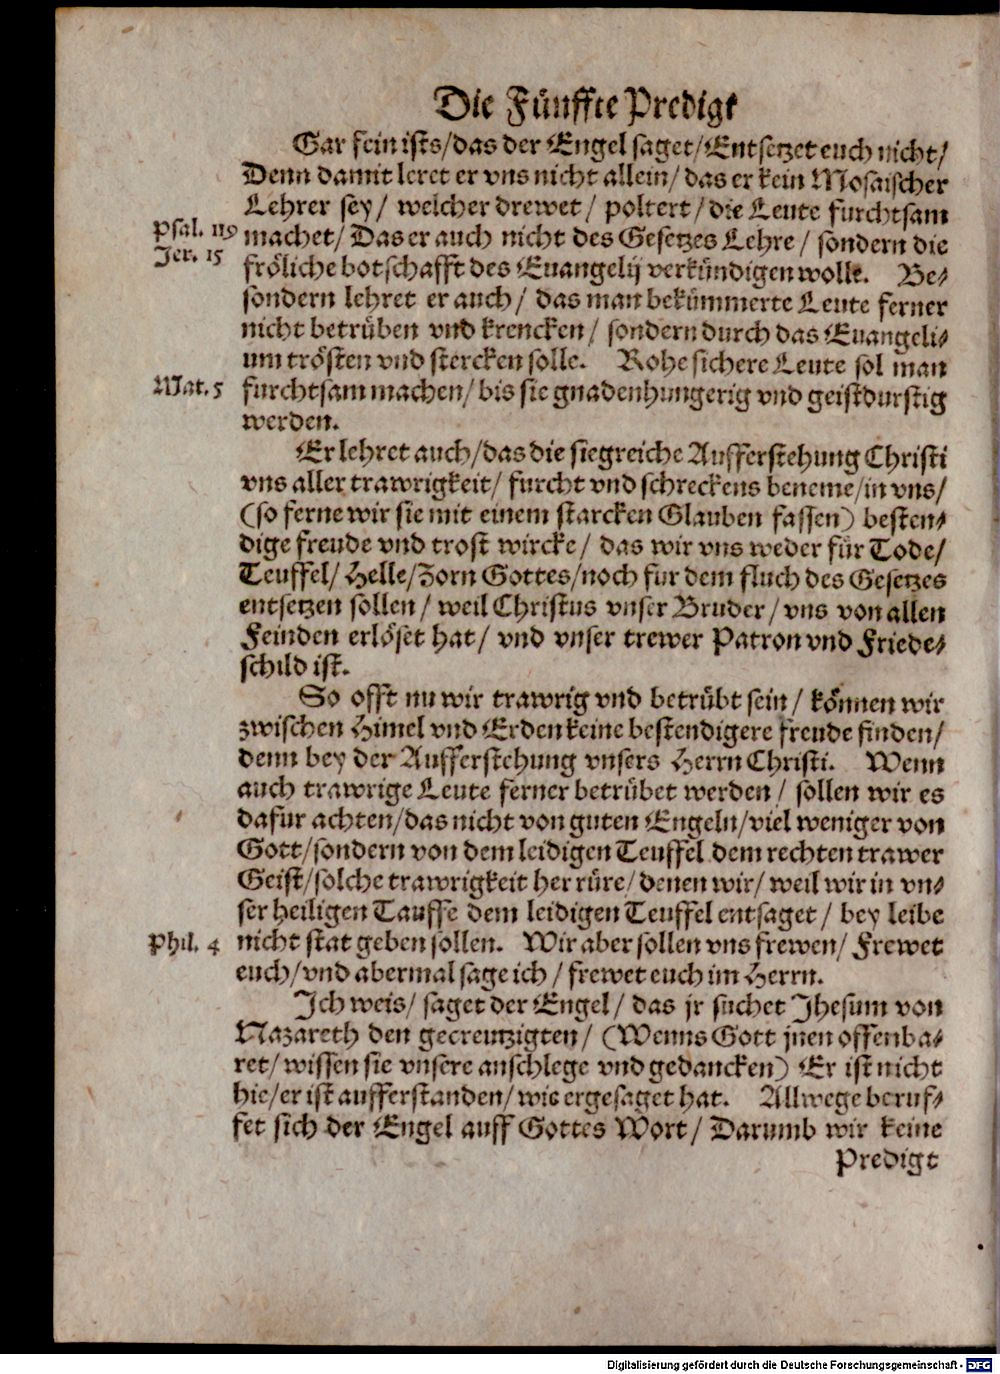 Die Fünffte Predigt
Gar fein ists/das der Engel saget/Entsetzet euch nicht/
Denn damit leret er vns nicht allein/das er kein Mosaischer
Lehrer sey/ welcher drewet/ poltert/die Leute furchtsam
Psal. 119 machet/Das er auch nicht des Gesetzes Lehre/ sondern die
Jer. 15 fröliche botschafft des Euangelij verkündigen wolle. Be-
sondern lehret er auch/ das man bekümmerte Leute ferner
nicht betrüben vnd krencken/ sondern durch das Euangeli-
um trösten vnd stercken solle. Rohe sichere Leute sol man
Mat. 5 furchtsam machen/bis sie gnadenhungerig vnd geistdurstig
werden.
Er lehret auch/das die siegreiche Aufferstehung Christi
vns aller trawrigkeit/ furcht vnd schreckens beneme/in vns/
(so ferne wir sie mit einem starcken Glauben fassen) besten-
dige freude vnd trost wircke/ das wir vns weder für Tode/
Teuffel/Helle/Zorn Gottes/noch fur dem fluch des Gesetzes
entsetzen sollen/ weil Christus vnser Bruder/vns von allen
Feinden erlöset hat/ vnd vnser trewer Patron vnd Friede-
schild ist.
So offt nu wir trawrig vnd betrübt sein/ können wir
zwischen Himel vnd Erden keine bestendigere freude finden/
denn bey der Aufferstehung vnsers Herrn Christi. Wenn
auch trawrige Leute ferner betrübet werden/ sollen wir es
dafur achten/das nicht von guten Engeln/viel weniger von
Gott/sondern von dem leidigen Teuffel dem rechten trawer
Geist/solche trawrigkeit her rüre/denen wir/ weil wir in vn-
ser heiligen Tauffe dem leidigen Teuffel entsaget/ bey leibe
Phil. 4 nicht stat geben sollen. Wir aber sollen vns frewen/ Frewet
euch/vnd abermal sage ich/ frewet euch im Herrn.
Ich weis/ saget der Engel/ das jr suchet Jhesum von
Nazareth den gecreutzigten/ (Wenns Gott jnen offenba-
ret/wissen sie vnsere anschlege vnd gedancken) Er ist nicht
hie/er ist aufferstanden/wie er gesaget hat. Allwege beruf-
fet sich der Engel auff Gottes Wort/ Darumb wir keine
Predigt
Digitalisierung gefördert durch die Deutsche Forschungsgemeinschaft - DFG